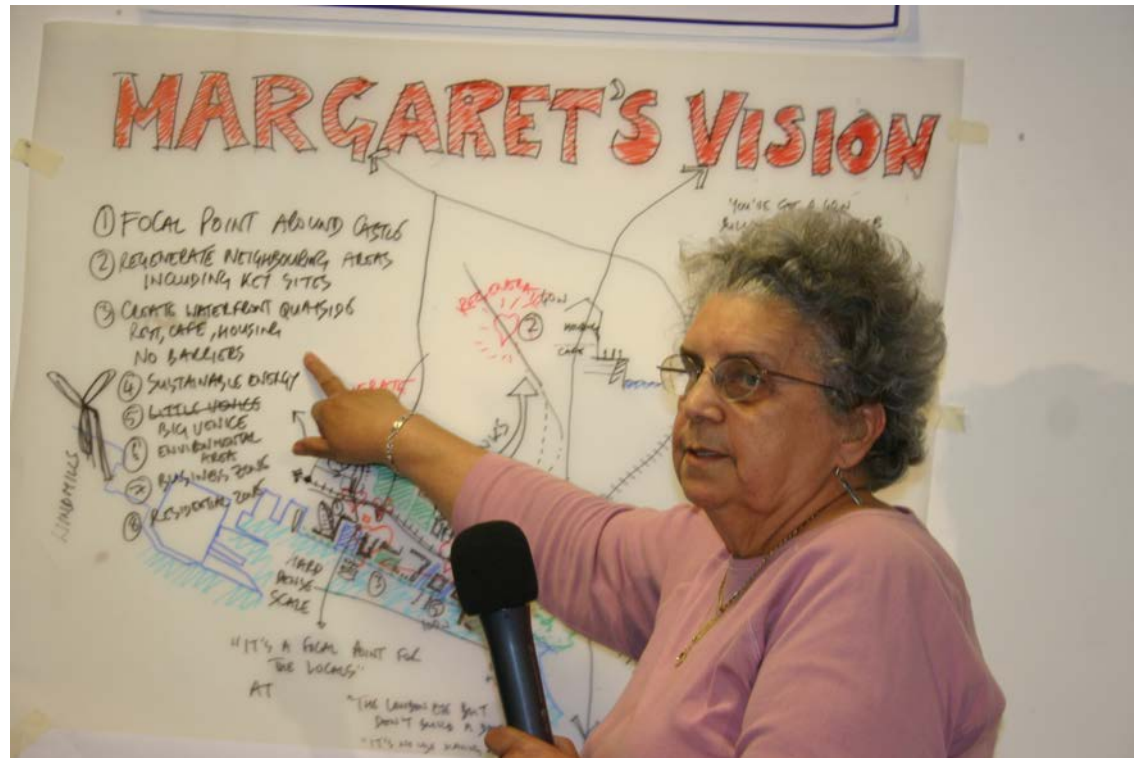 MARGARET'S VISION
① FOCAL POINT AROUND CASTLE
② REGENERATE NEIGHBOURING AREAS
INCLUDING KEY SITES
③ CREATE WATERFRONT QUAYSIDE
REST, CAFE, HOUSING
NO BARRIERS
④ SUSTAINABLE ENERGY
⑤ LITTLE VENICE
BIG VENICE
⑥ ENVIRONMENTAL
AREA
⑦ BUSINESS ZONE
⑧ RESIDENTIAL ZONE
WINDMILLS
YOU'VE GOT A
REGENERATE
②
HOUSING
CAFE
③
HARD
DENSE
SCALE
"IT'S A FOCAL POINT FOR
THE LOCALS"
AT
"THE LONDON EYE BUT
DON'T BUILD A
"IT'S NO USE HAVING